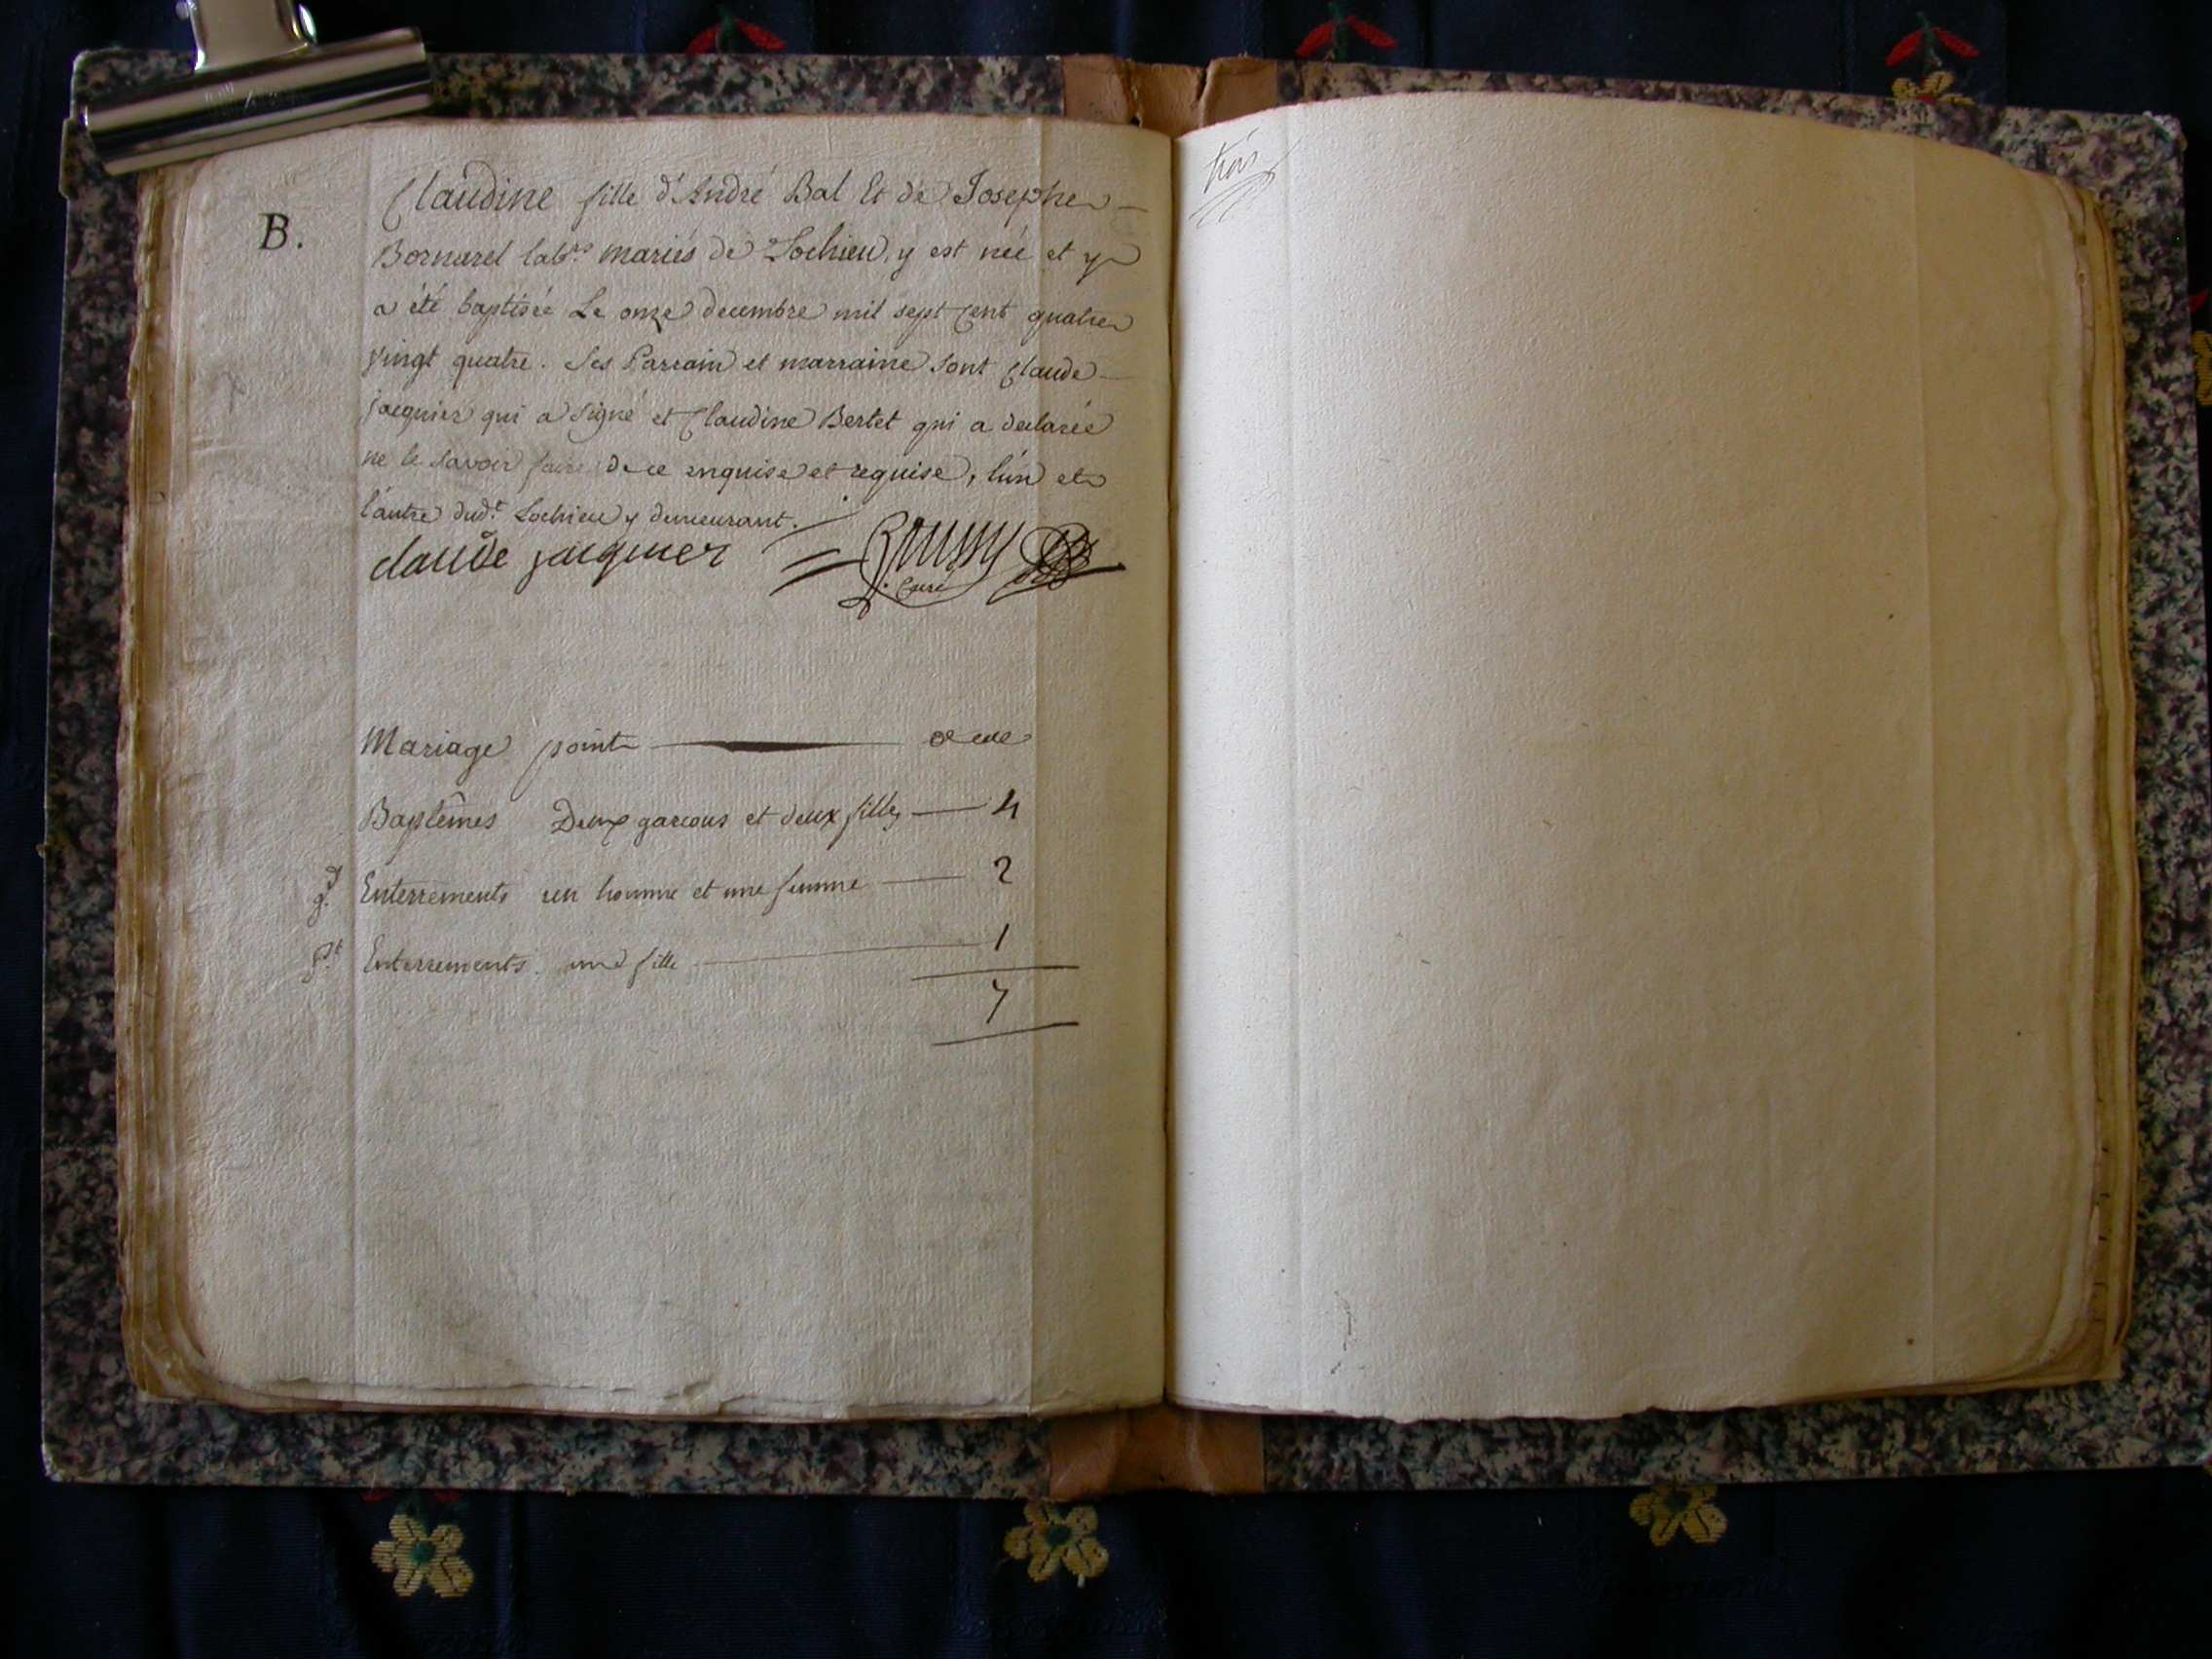 B.
Claudine fille d'André Bal Et de Josephe
Bornarel labrs mariés de Lochieu, y est née et y
a été baptisée Le onze decembre mil sept Cent quatre
vingt quatre. Ses Parrain et marraine sont Claude
jacquier qui a signé et Claudine Bertet qui a declarée
ne le savoir faire de ce enquise et requise, l'un et
l'autre dudt. Lochieu y demeurant.
claude jacquier
Curé
Mariage point
Baptêmes Deux garcons et deux filles 4
gd. Enterrements un homme et une femme 2
pt. Enterrements. une fille 1
7
trois